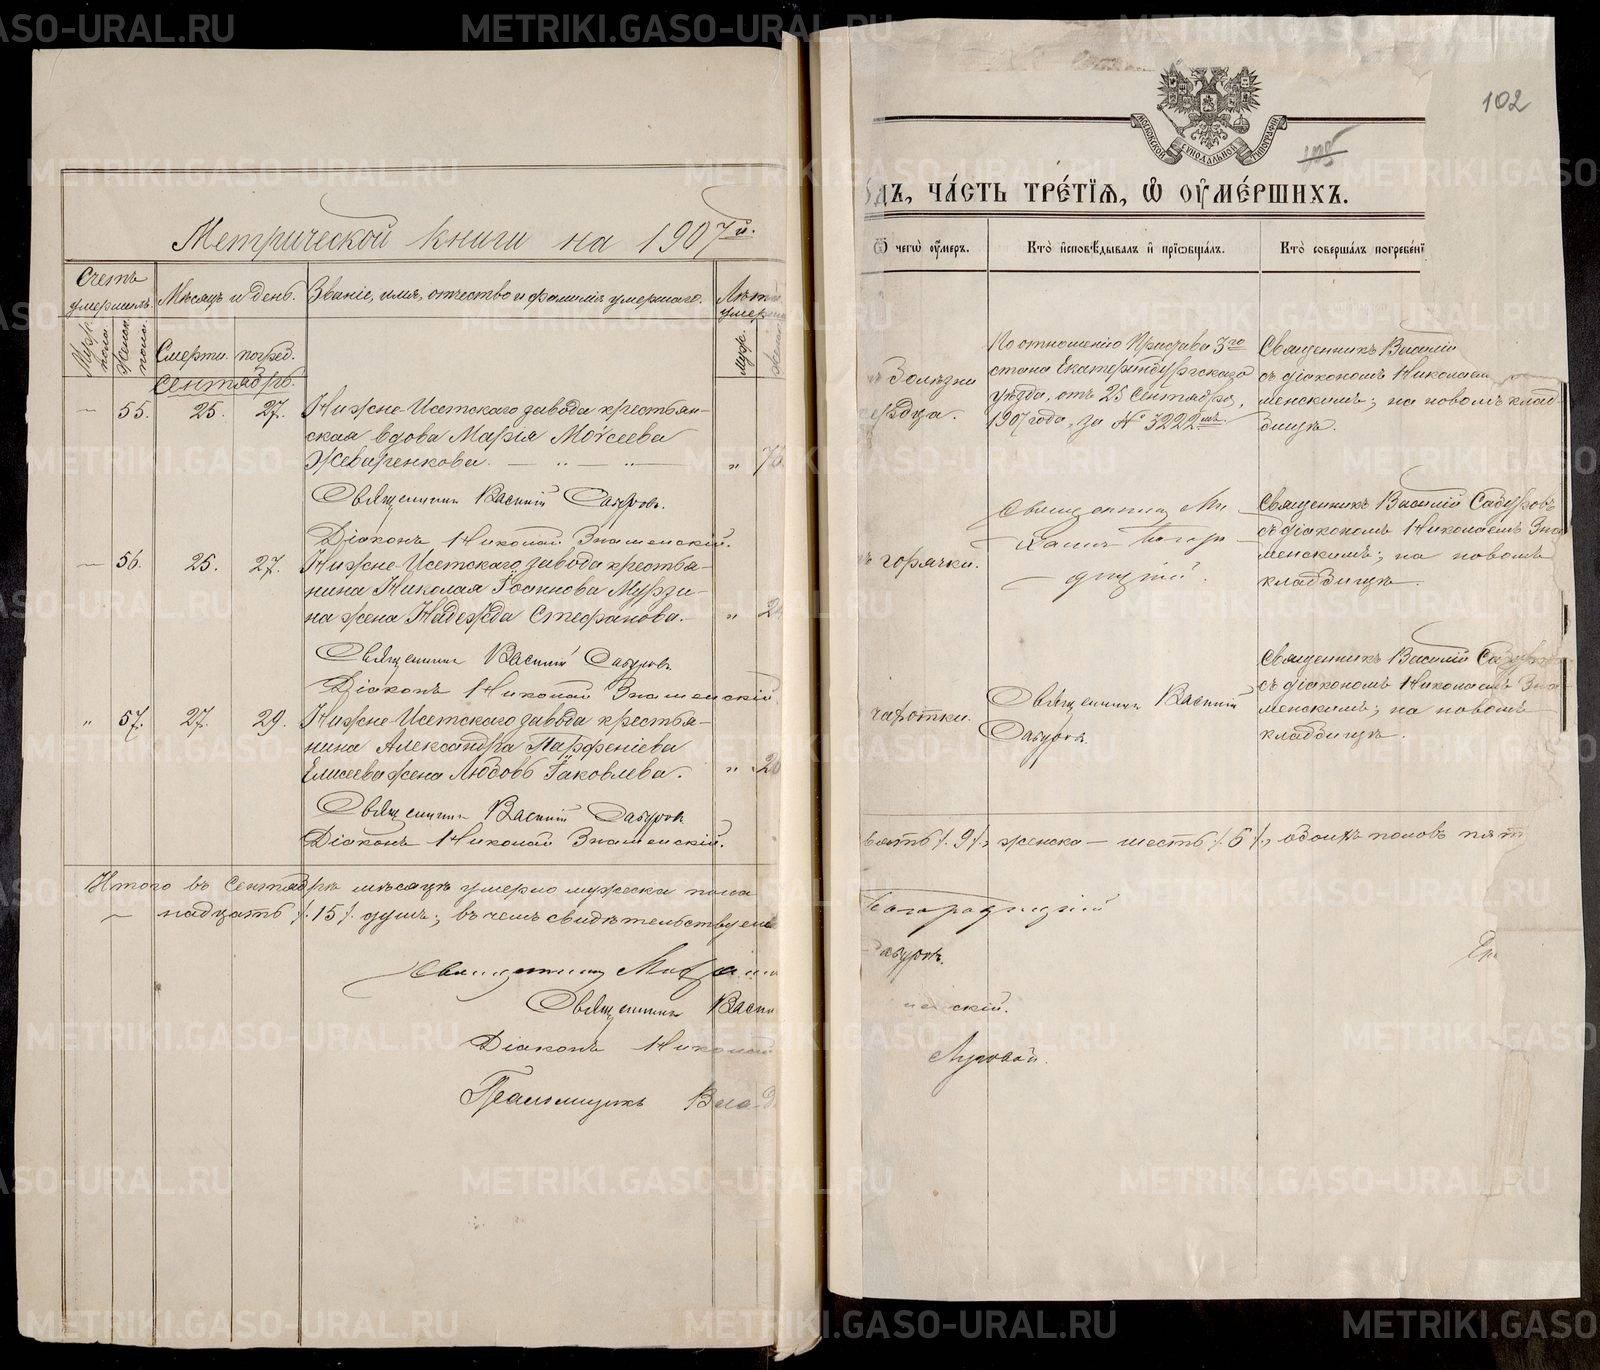 Метрической книги на 1907й.
Счетъ умершихъ.
Мѣсяцъ и день.
Званіе, имя, отчество и фамилія умершаго.
Лѣта
умер
Муж. пола
Женск. пола.
Смерти.
погреб.
Муж.
Сентябрь.
— 55. 25. 27. Нижне-Исетскаго завода крестьян-
ская вдова Марія Моѵсеева
Жеваренкова. — „ — „ — „ 7
Священникъ Василій Сабуровъ.
Діаконъ Николай Знаменскій.
— 56. 25. 27. Нижне-Исетскаго завода крестья-
нина Николая Іоаннова Мурзи-
на жена Надежда Стефанова. — „ 2
Священникъ Василій Сабуровъ
Діаконъ Николай Знаменскій
„ 57. 27. 29. Нижне-Исетскаго завода крестья-
нина Александра Парфеніева
Елисеева жена Любовь Іаковлева. „ 20
Священникъ Василій Сабуровъ
Діаконъ Николай Знаменскій.
Итого въ Сентябрѣ мѣсяцѣ умерло мужеска пола
— надцать /.15/. душъ; въ чемъ свидѣтельствуем
Священникъ
Священникъ Васи
Діаконъ Николай
Псаломщикъ Влад
102
105
МОСКОВСКОЙ СѴНОДАЛЬНОЙ ТИПОГРАФІИ
ДЪ, ЧА́СТЬ ТРЕ́ТІѦ, Ѡ҆ ОУ҆МЕ́РШИХЪ.
Ѿ чегѡ̀ оу҆́меръ.
Кто̀ и҆сповѣ́дывалъ и҆ прїѡбща́лъ.
Кто̀ соверша́лъ погребе́нї
ъ болѣзни
сердца.
По отношенію Пристава 3го
стана Екатеринбургскаго
уѣзда, отъ 25 Сентября,
1907 года, за № 3222мъ
Священникъ Василій
съ діакономъ Николаем
менскимъ; на новомъ клад-
бищѣ.
ъ горячки.
Священникъ Ми
хаилъ Богоро
дицкій.
Священникъ Василій Сабуровъ
съ діакономъ Николаемъ Зна
менскимъ; на новомъ
кладбищѣ.
чахотки.
Священникъ Василій
Сабуровъ.
Священникъ Василій Сабуров
съ діакономъ Николаемъ Зна-
менскимъ; на новомъ
кладбищѣ.
вять /. 9 /., женска — шесть /. 6 /., обоихъ половъ пят
Богородицкій
Сабуровъ.
скій.
Луговой.
METRIKI.GASO-URAL.RU